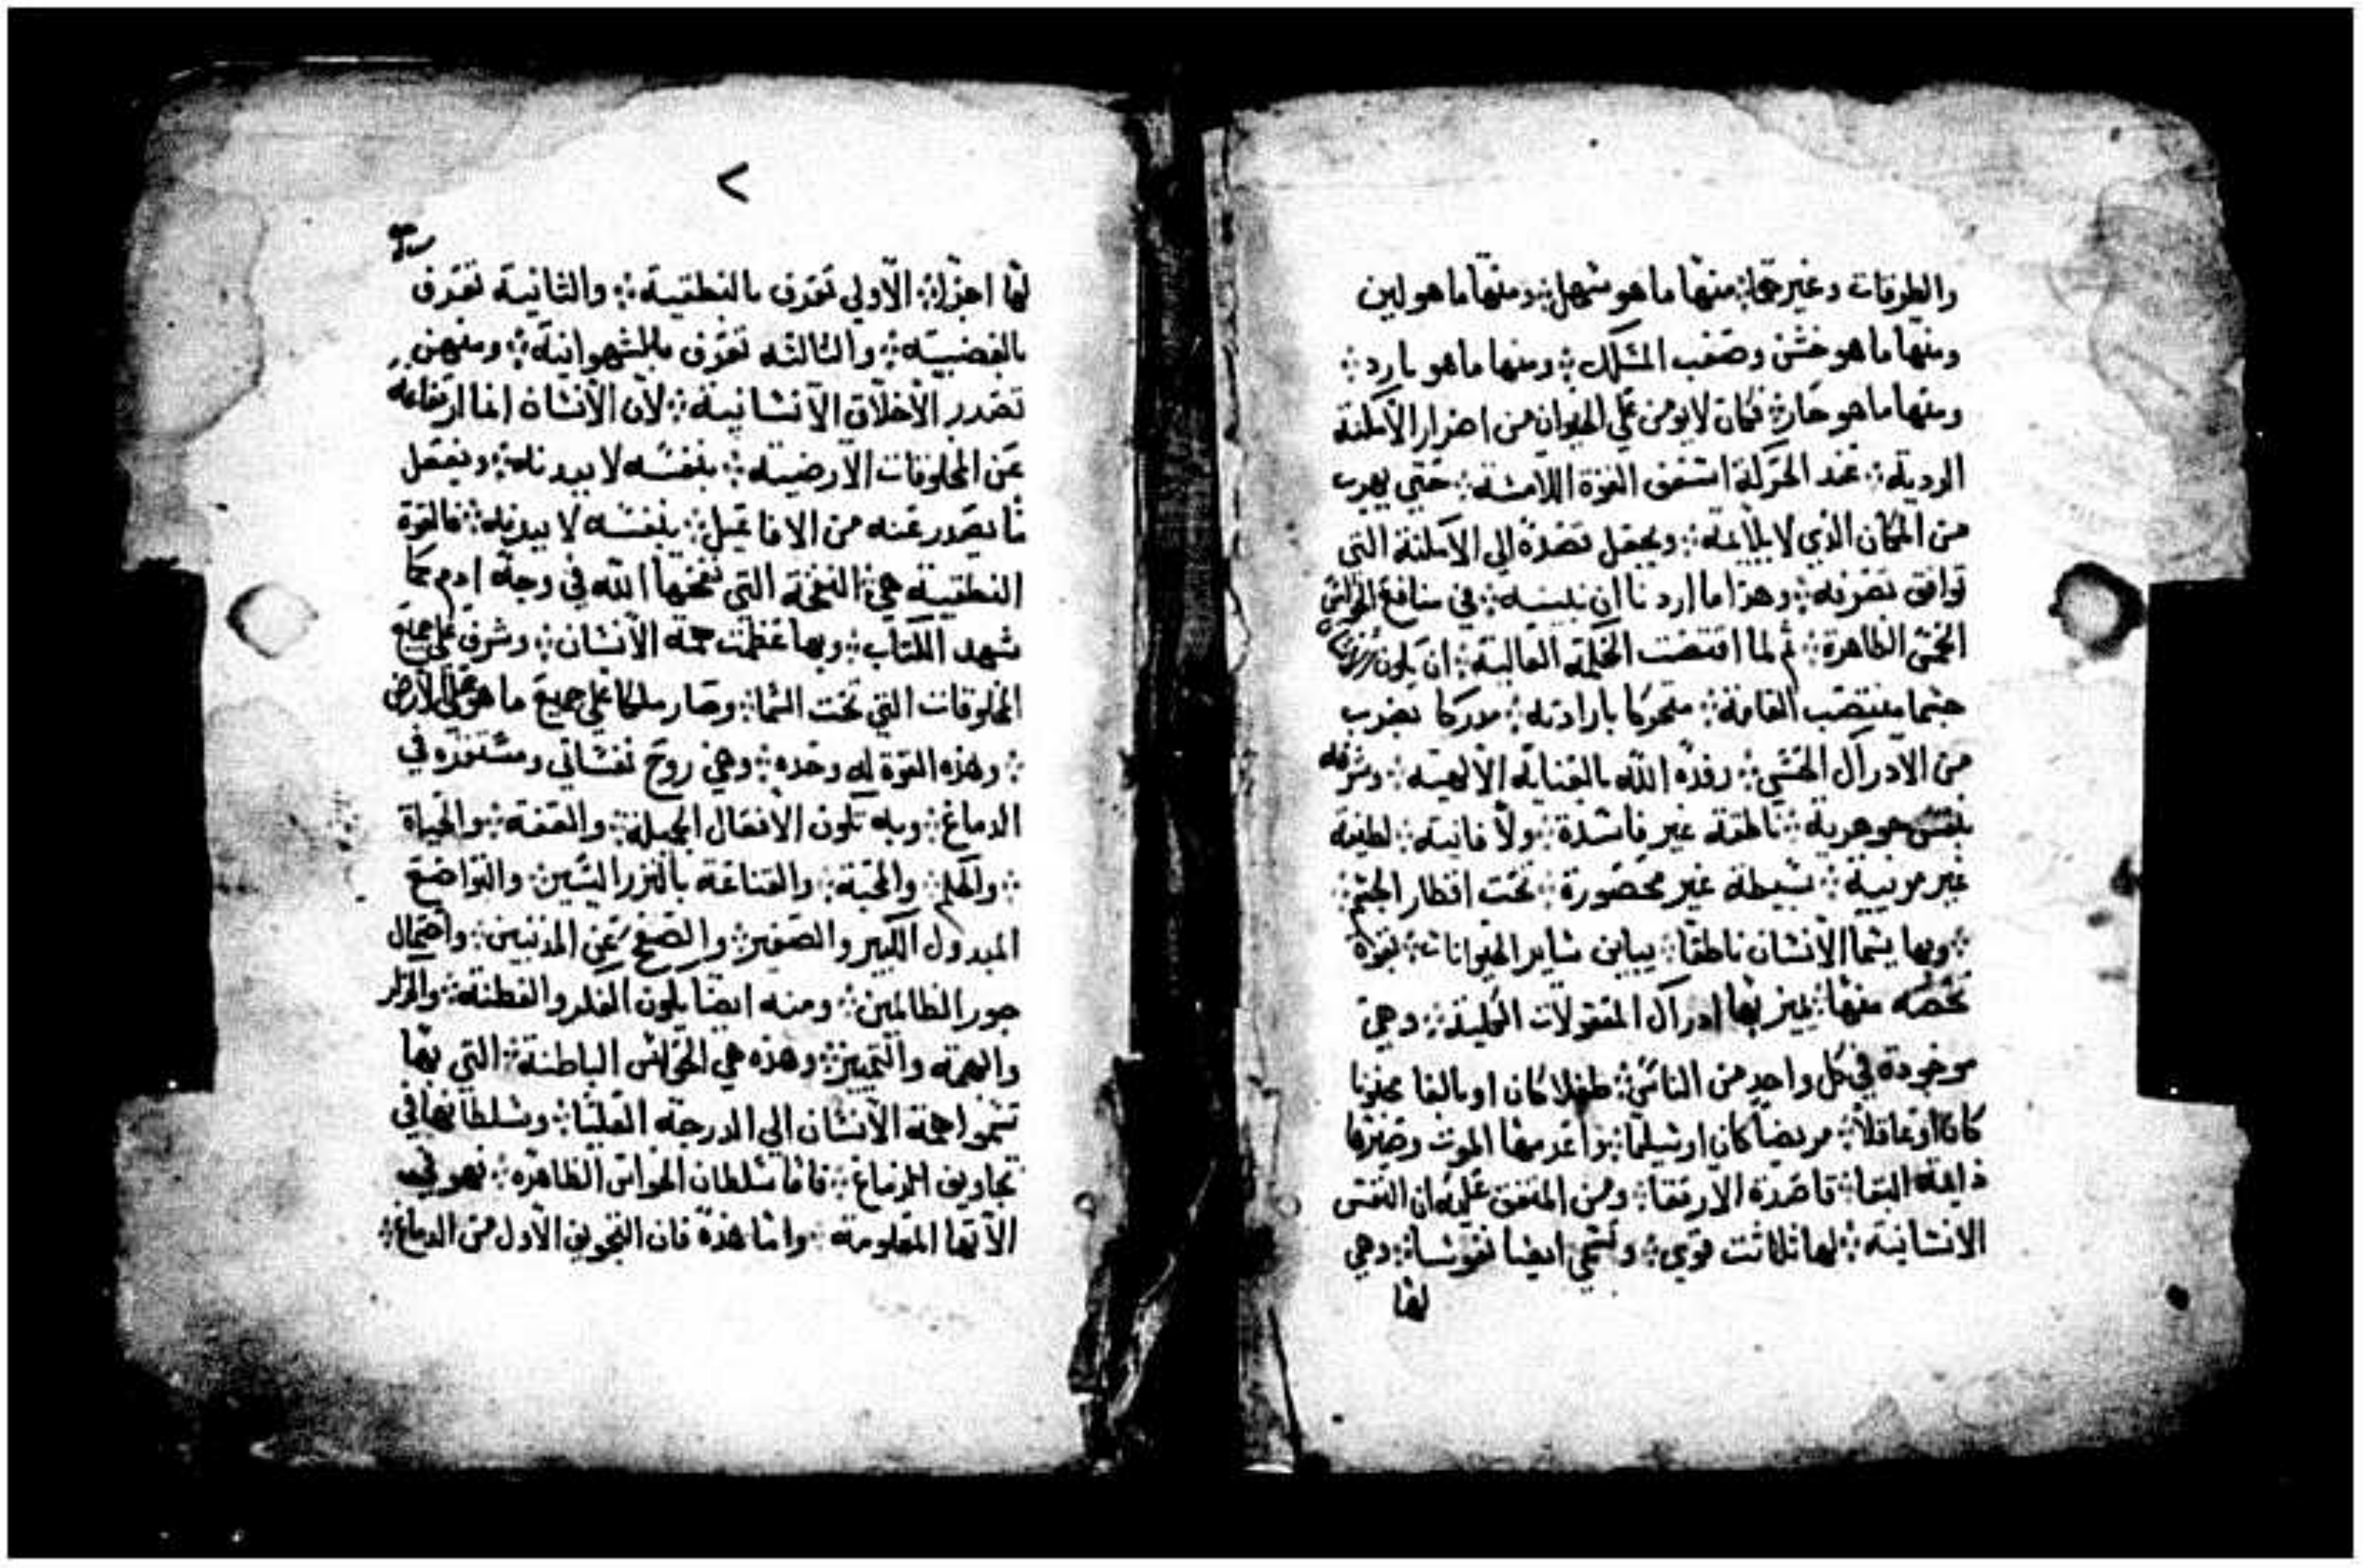 والطرقات وغيرها ܀ منها ما هو سهل ܀ ومنها ما هو لين
ومنها ما هو خشن وصعب المسلك ܀ ومنها ما هو بارد ܀
ومنها ما هو حار ܀ فكان لا يومن علي الحيوان من اضرار الاماكنة
الردية ܀ عند الحركة استعف القوة اللامسة ܀ حتي يهرب
من المكان الذي لا يلايمه ܀ ويجعل قصده الي الاماكنة التي
توافق تصرفه ܀ وهذا ما اردنا ان نبينه ܀ في منافع الحواس
الخمس الظاهرة ܀ ثم لما اقتضت الحكمة العالية ܀ ان يكون
جسما منتصب القامة ܀ متحركا بارادته ܀ مدركا بضرب
من الادراك الحسي ܀ رفده الله بالعناية الالهية ܀ وشرفه
بنفس جوهرية ܀ ناطقة غير فاسدة ܀ ولا فانية ܀ لطيفة
غير مرييه ܀ بسيطة غير محصورة ܀ تحت اقطار الجسم ܀
܀ وبها يسما الانسان ناطقا ܀ يباين ساير الحيوانات ܀ بقوة
تخصه منها ܀ يميز بها ادراك المعقولات الكلية ܀ وهي
موجودة في كل واحد من الناس ܀ طفلا كان او بالغا مجنونا
كان او عاقلا ܀ مريضا كان او سليما ܀ الموت وصيرها
دايمة البقا ܀ قاصدة الارتقا ܀ ومن المتفق عليه ان النفس
الانسانية ܀ لها ثلاثت قوي ܀ وتسمي ايضا نفوسا ܀ وهي
لها
<
لها اجزا ܀ الاولي تعرف بالنطقية ܀ والثانية تعرف
بالغضبية ܀ والثالثه تعرف بالشهوانية ܀ ومنهن
تصدر الاخلاق الانسانية ܀ لان الانسان انما ارتفاعه
عن المخلوقات الارضية ܀ بنفسه لا ببدنه ܀ ويفعل
ما يصدر عنه من الافاعيل ܀ بنفسه لا ببدنه ܀ فالقوة
النطقية هي ܀ النفخة التي نفخها الله في وجه ادم كما
شهد الكتاب ܀ وبها عظمت همة الانسان ܀ وشرف علي جميع
المخلوقات التي تحت السما ܀ وصار ملكا علي جميع ما هو علي الارض
܀ وهذه القوة له وحده ܀ وهي روح نفساني ومستقره في
الدماغ ܀ وبه تكون الافعال الجميلة ܀ والعفة ܀ والحياة
܀ والحلم ܀ والمحبة ܀ والقناعة بالنزر اليسير ܀ والتواضع
المبدول الكبير والصغير ܀ والصفح عن المدنبين ܀ واحتمال
جور الظالمين ܀ ومنه ايضا يكون الفكر والفطنة ܀ والذكر
والهمة والتمييز ܀ وهذه هي الحواس الباطنة ܀ التي بها
تسموا همة الانسان الي الدرجة العليا ܀ وسلطانها في
تجاويف الدماغ ܀ فاما سلطان الحواس الظاهرة ܀ فهو في
الآتها المعلومة ܀ واما هذه فان التجويف الاول من الدماغ ܀